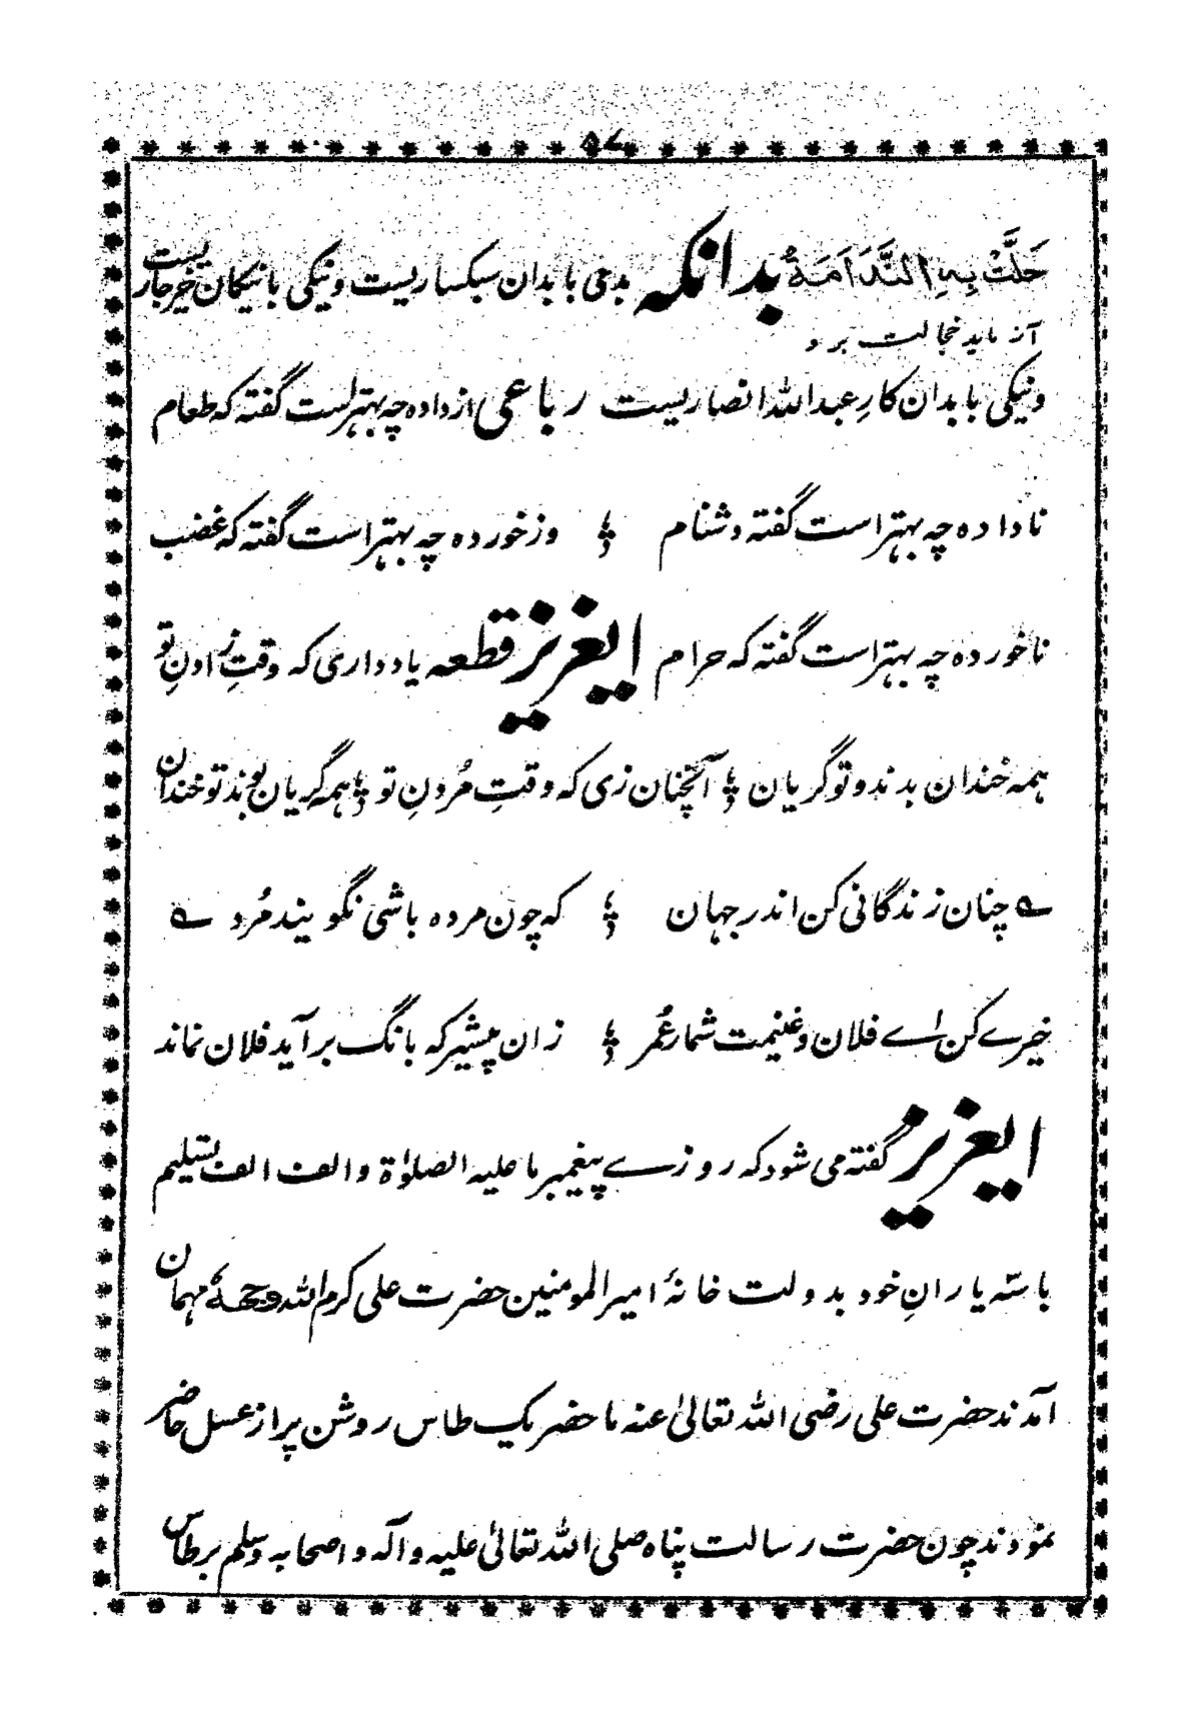 ۵۷
حَلَّتْ بِہِ النَّدَامَۃُ بدانکہ بدی بابدان سبکساریست ونیکی بانیکان خرجاریست
آید خجالت برو
ونیکی بابدان کارِ عبداللہ انصاریست رباعی ازدادہ چہ بہتر است گفتہ کہ طعام
نادادہ چہ بہتر است گفتہ دشنام وزخوردہ چہ بہتر است گفتہ کہ غضب
ناخوردہ چہ بہتر است گفتہ کہ حرام ایعزیز قطعہ یادداری کہ وقتِ زادنِ تو
ہمہ خندان بدند وتو گریان آنچنان زی کہ وقتِ مُردنِ تو ہمہ گریان بوند تو خندان
؎ چنان زندگانی کن اندر جہان کہ چون مردہ باشی نگویند مُرد ؎
خیرے کن اے فلان وغنیمت شمار عُمر زان پیشتر کہ بانگ برآید فلان نماند
ایعزیز گفتہ می شود کہ روزے پیغمبر ما علیہ الصلوٰۃ والف الف تسلیم
باسّہ یارانِ خود بدولت خانۂ امیرالمومنین حضرت علی کرم اللہ وجہہٗ مہمان
آمدند حضرت علی رضی اللہ تعالیٰ عنہ ماحضر یک طاس روشن پر از عسل حاضر
نمودند چون حضرت رسالت پناہ صلی اللہ تعالیٰ علیہ وآلہ واصحابہ وسلم برطاس